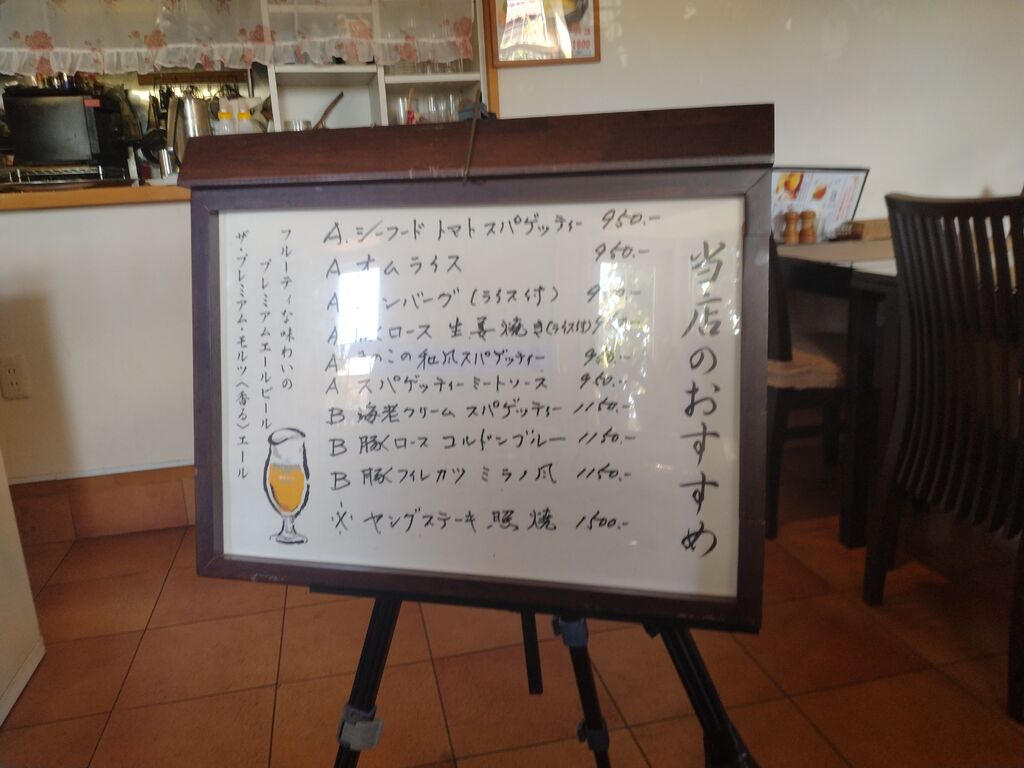 当店のおすすめ
A. シーフード トマト スパゲッティー 950.-
A オムライス 950.-
A ンバーグ (ライス付)
A ロース 生姜焼き(ライス付)
A きのこの和風スパゲッティー
A スパゲッティーミートソース 950.-
B 海老クリーム スパゲッティー 1150.-
B 豚ロース コルドンブルー 1150.-
B 豚フィレカツ ミラノ風 1150.-
※ ヤングステーキ 照焼 1500.-
フルーティな味わいの
プレミアムエールビール
ザ・プレミアム・モルツ〈香る〉エール